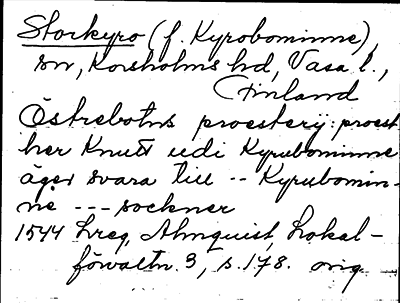 Storkyro (f. Kyrobominne),
sn, Korsholms hd, Vasa l.,
Finland
Östrebotns proesterij: proest
her Knutt udi Kyrubominne
äger svara till -- Kyrubomin-
ne --- sockner
1544 Lreg, Almquist, Lokal-
förvaltn. 3, s. 178. orig